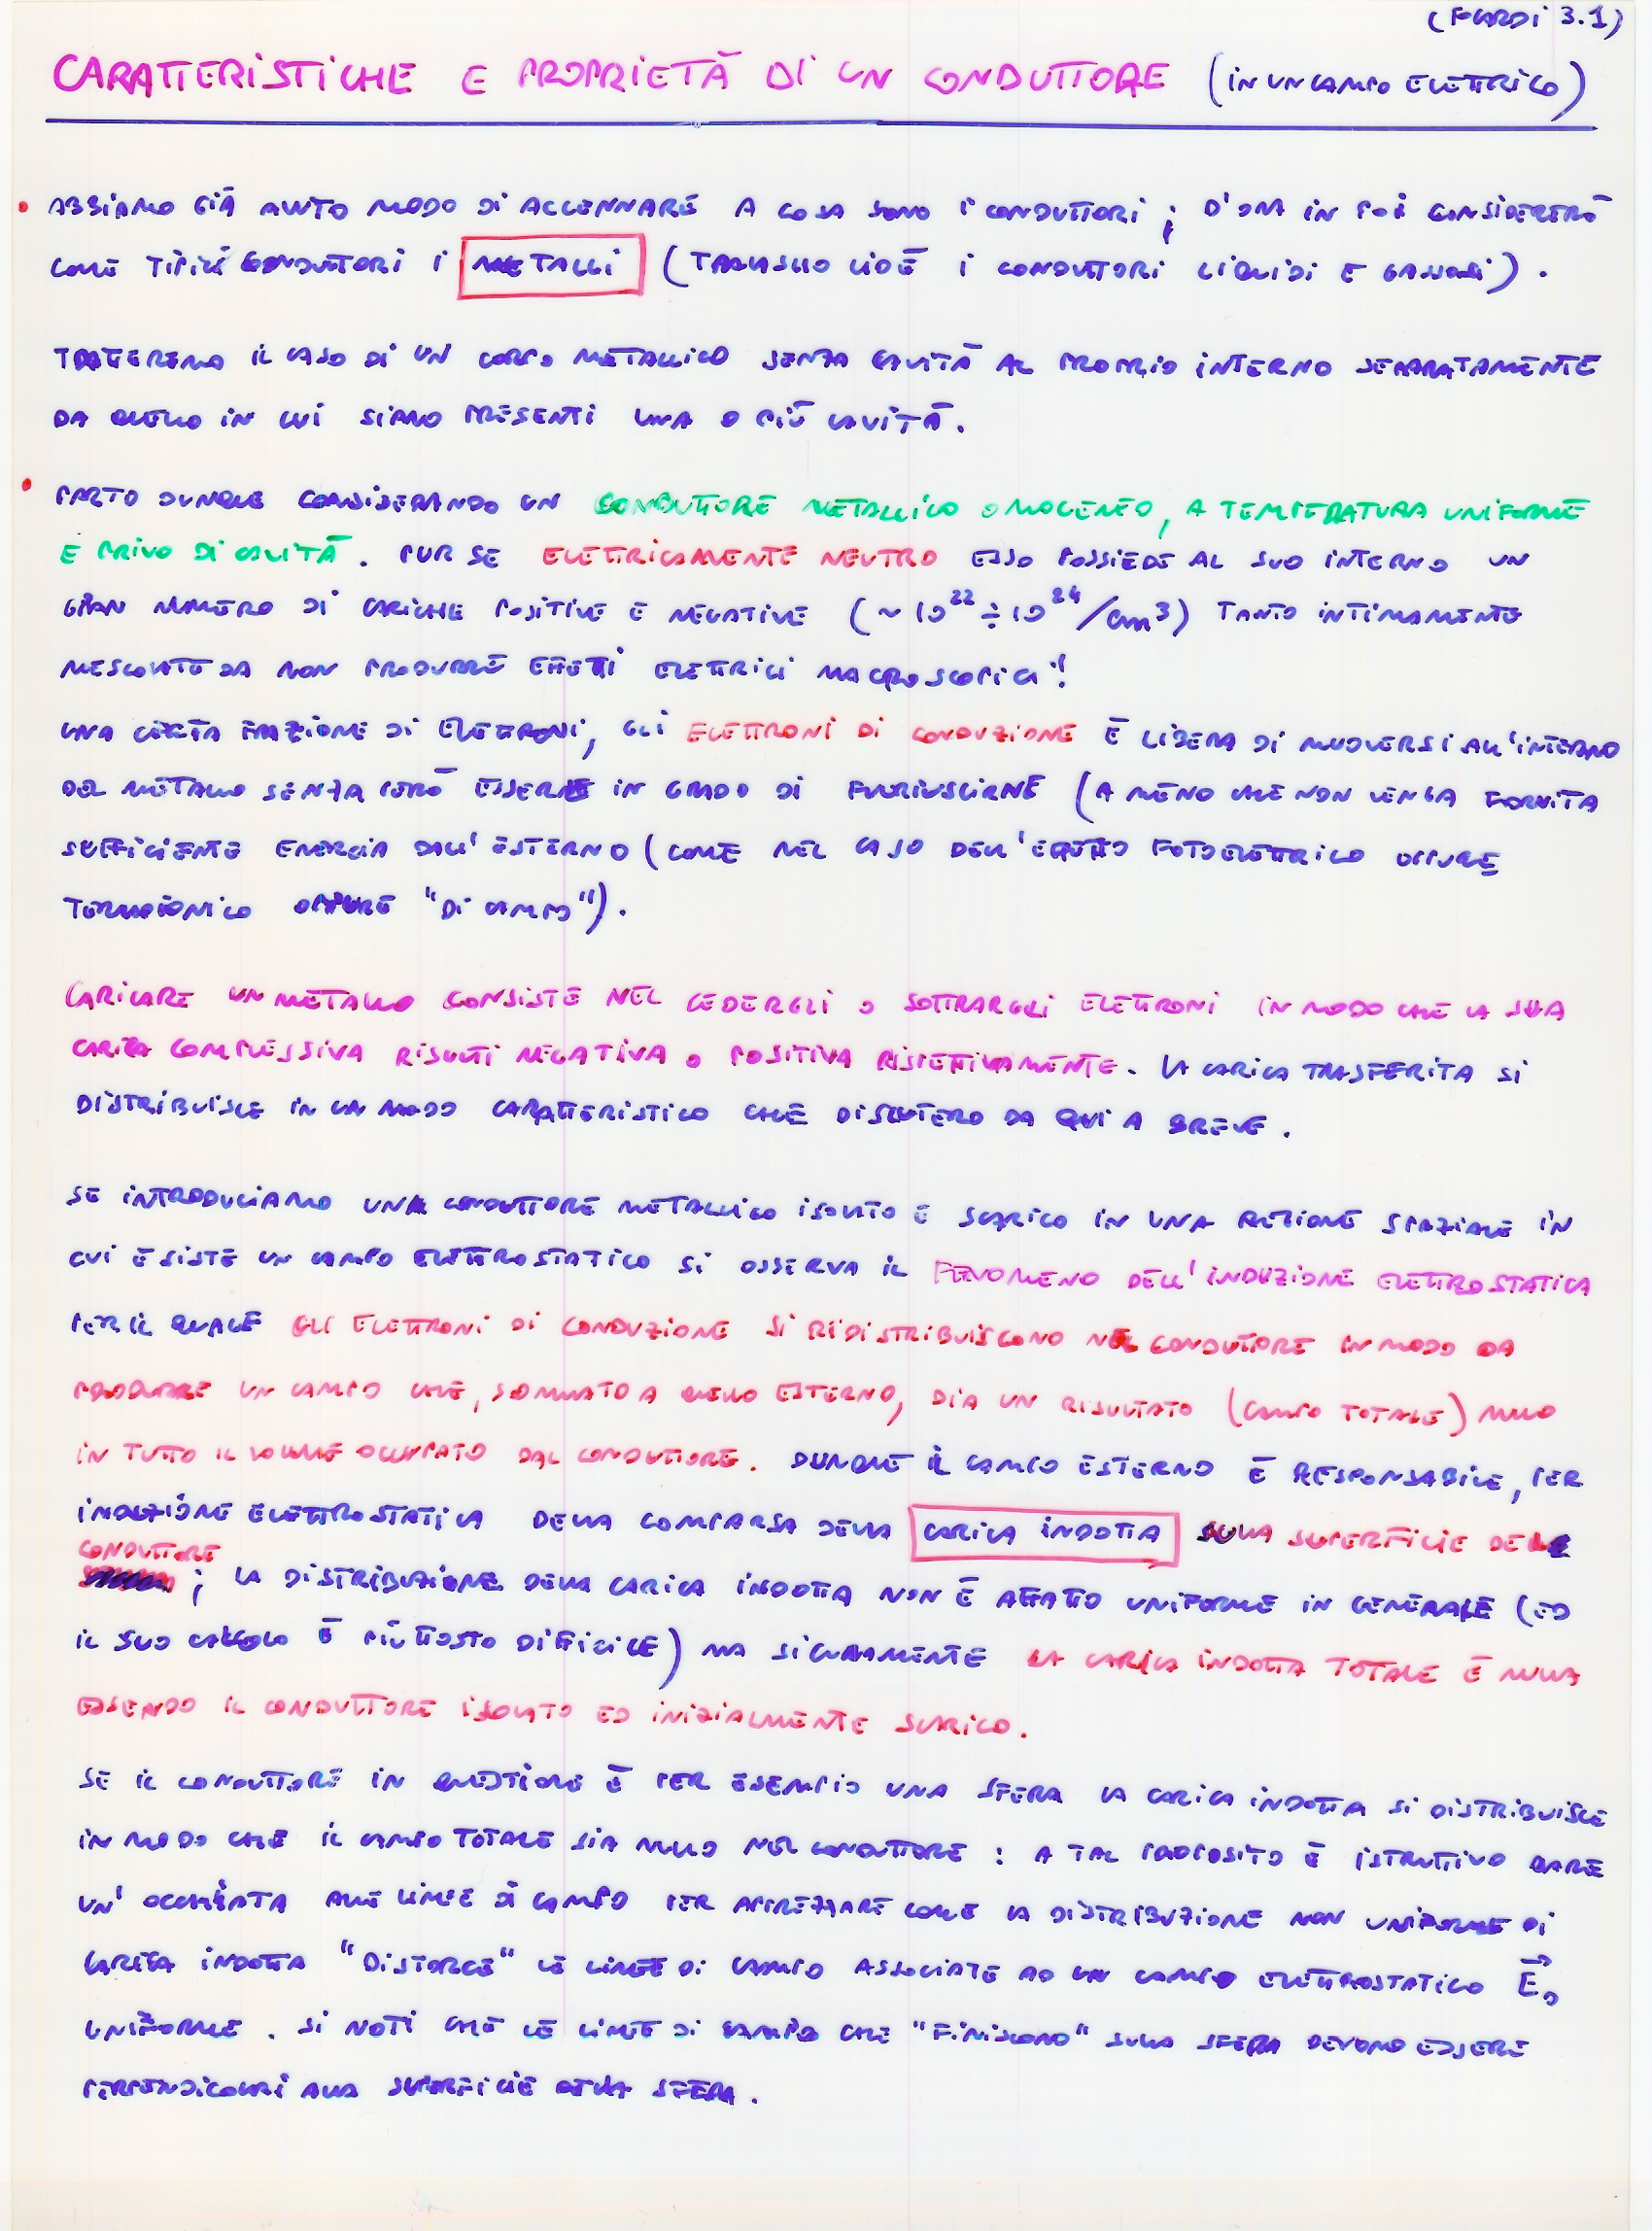 (FOCARDI 3.1)
CARATTERISTICHE E PROPRIETÀ DI UN CONDUTTORE (IN UN CAMPO ELETTRICO)
• ABBIAMO GIÀ AVUTO MODO DI ACCENNARE A COSA SONO I CONDUTTORI ; D'ORA IN POI CONSIDERERÒ
COME TIPICI CONDUTTORI I METALLI (TRALASCIO CIOÈ I CONDUTTORI LIQUIDI E GASSOSI) .
TRATTEREMO IL CASO DI UN CORPO METALLICO SENZA CAVITÀ AL PROPRIO INTERNO SEPARATAMENTE
DA QUELLO IN CUI SIANO PRESENTI UNA O PIÙ CAVITÀ .
• PARTO DUNQUE CONSIDERANDO UN CONDUTTORE METALLICO OMOGENEO, A TEMPERATURA UNIFORME
E PRIVO DI CAVITÀ . PUR SE ELETTRICAMENTE NEUTRO ESSO POSSIEDE AL SUO INTERNO UN
GRAN NUMERO DI CARICHE POSITIVE E NEGATIVE (~ 10²² ÷ 10²⁴ /cm³) TANTO INTIMAMENTE
MESCOLATE DA NON PRODURRE EFFETTI ELETTRICI MACROSCOPICI !
UNA CERTA FRAZIONE DI ELETTRONI, GLI ELETTRONI DI CONDUZIONE È LIBERA DI MUOVERSI ALL'INTERNO
DEL METALLO SENZA PERÒ ESSERE IN GRADO DI FUORIUSCIRNE (A MENO CHE NON VENGA FORNITA
SUFFICIENTE ENERGIA DALL'ESTERNO (COME NEL CASO DELL'EFFETTO FOTOELETTRICO OPPURE
TERMOIONICO OPPURE "DI CAMPO").
CARICARE UN METALLO CONSISTE NEL CEDERGLI O SOTTRARGLI ELETTRONI IN MODO CHE LA SUA
CARICA COMPLESSIVA RISULTI NEGATIVA O POSITIVA RISPETTIVAMENTE. LA CARICA TRASFERITA SI
DISTRIBUISCE IN UN MODO CARATTERISTICO CHE DISCUTERÒ DA QUI A BREVE .
SE INTRODUCIAMO UN CONDUTTORE METALLICO ISOLATO E SCARICO IN UNA REGIONE SPAZIALE IN
CUI ESISTE UN CAMPO ELETTROSTATICO SI OSSERVA IL FENOMENO DELL'INDUZIONE ELETTROSTATICA
PER IL QUALE GLI ELETTRONI DI CONDUZIONE SI RIDISTRIBUISCONO NEL CONDUTTORE IN MODO DA
PRODURRE UN CAMPO CHE, SOMMATO A QUELLO ESTERNO, DIA UN RISULTATO (CAMPO TOTALE) NULLO
IN TUTTO IL VOLUME OCCUPATO DAL CONDUTTORE. DUNQUE IL CAMPO ESTERNO È RESPONSABILE, PER
INDUZIONE ELETTROSTATICA DELLA COMPARSA DELLA CARICA INDOTTA SULLA SUPERFICIE DEL
CONDUTTORE ; LA DISTRIBUZIONE DELLA CARICA INDOTTA NON È AFFATTO UNIFORME IN GENERALE (ED
IL SUO CALCOLO È PIUTTOSTO DIFFICILE) MA SICURAMENTE LA CARICA INDOTTA TOTALE È NULLA
ESSENDO IL CONDUTTORE ISOLATO ED INIZIALMENTE SCARICO.
SE IL CONDUTTORE IN QUESTIONE È PER ESEMPIO UNA SFERA LA CARICA INDOTTA SI DISTRIBUISCE
IN MODO CHE IL CAMPO TOTALE SIA NULLO NEL CONDUTTORE : A TAL PROPOSITO È ISTRUTTIVO DARE
UN'OCCHIATA ALLE LINEE DI CAMPO PER APPREZZARE COME LA DISTRIBUZIONE NON UNIFORME DI
CARICA INDOTTA "DISTORCE" LE LINEE DI CAMPO ASSOCIATE AD UN CAMPO ELETTROSTATICO E⃗₀
UNIFORME . SI NOTI CHE LE LINEE DI CAMPO CHE "FINISCONO" SULLA SFERA DEVONO ESSERE
PERPENDICOLARI ALLA SUPERFICIE DELLA SFERA .